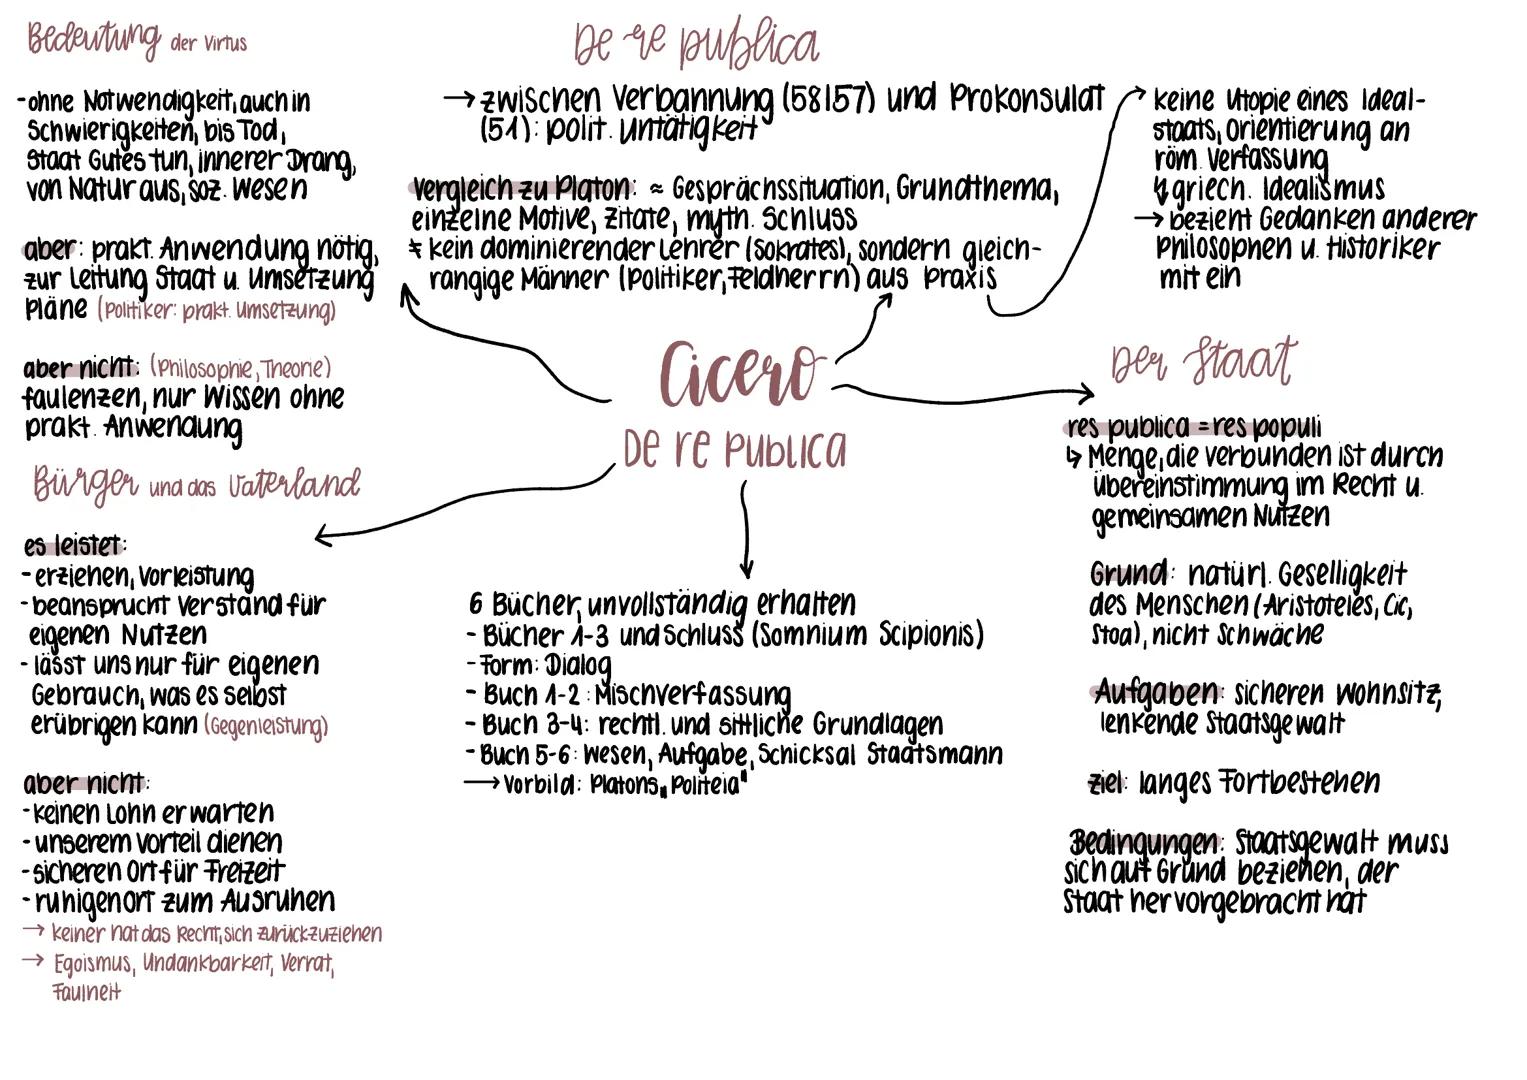 Bedeutung der Virtus
- ohne Notwendigkeit, auch in
Schwierigkeiten, bis Tod,
Staat Gutes tun, innerer Drang,
von Natur aus, soz. Wesen
aber: prakt. Anwendung nötig,
zur Leitung Staat u. Umsetzung
Pläne (Politiker: prakt. Umsetzung)
aber nicht: (Philosophie, Theorie)
faulenzen, nur Wissen ohne
prakt. Anwendung
Bürger und das Vaterland
es leistet:
- erziehen, Vorleistung
- beansprucht Verstand für
eigenen Nutzen
- lässt uns nur für eigenen
Gebrauch, was es selbst
erübrigen kann (Gegenleistung)
aber nicht:
- keinen Lohn erwarten
- unserem Vorteil dienen
- sicheren Ort für Freizeit
- ruhigen Ort zum Ausruhen
→ keiner hat das Recht, sich zurückzuziehen
→ Egoismus, Undankbarkeit, Verrat,
Faulheit
De re publica
→ zwischen Verbannung (58157) und Prokonsulat
(51): polit. Untätigkeit
Vergleich zu Platon: ≈ Gesprächssituation, Grundthema,
einzelne Motive, Zitate, myth. Schluss
≠ kein dominierender Lehrer (Sokrates), sondern gleich-
rangige Männer (Politiker, Feldherrn) aus Praxis
Cicero
De re publica
6 Bücher, unvollständig erhalten
- Bücher 1-3 und Schluss (Somnium Scipionis)
- Form: Dialog
- Buch 1-2: Mischverfassung
- Buch 3-4: rechtl. und sittliche Grundlagen
- Buch 5-6: Wesen, Aufgabe, Schicksal Staatsmann
→ Vorbild: Platons „Politeia"
keine Utopie eines Ideal-
staats, Orientierung an
röm. Verfassung
↯ griech. Idealismus
→ bezieht Gedanken anderer
Philosophen u. Historiker
mit ein
Der Staat
res publica = res populi
↳ Menge, die verbunden ist durch
Übereinstimmung im Recht u.
gemeinsamen Nutzen
Grund: natürl. Geselligkeit
des Menschen (Aristoteles, Cic,
Stoa), nicht Schwäche
Aufgaben: sicheren Wohnsitz,
lenkende Staatsgewalt
Ziel: langes Fortbestehen
Bedingungen: Staatsgewalt muss
sich auf Grund beziehen, der
Staat hervorgebracht hat